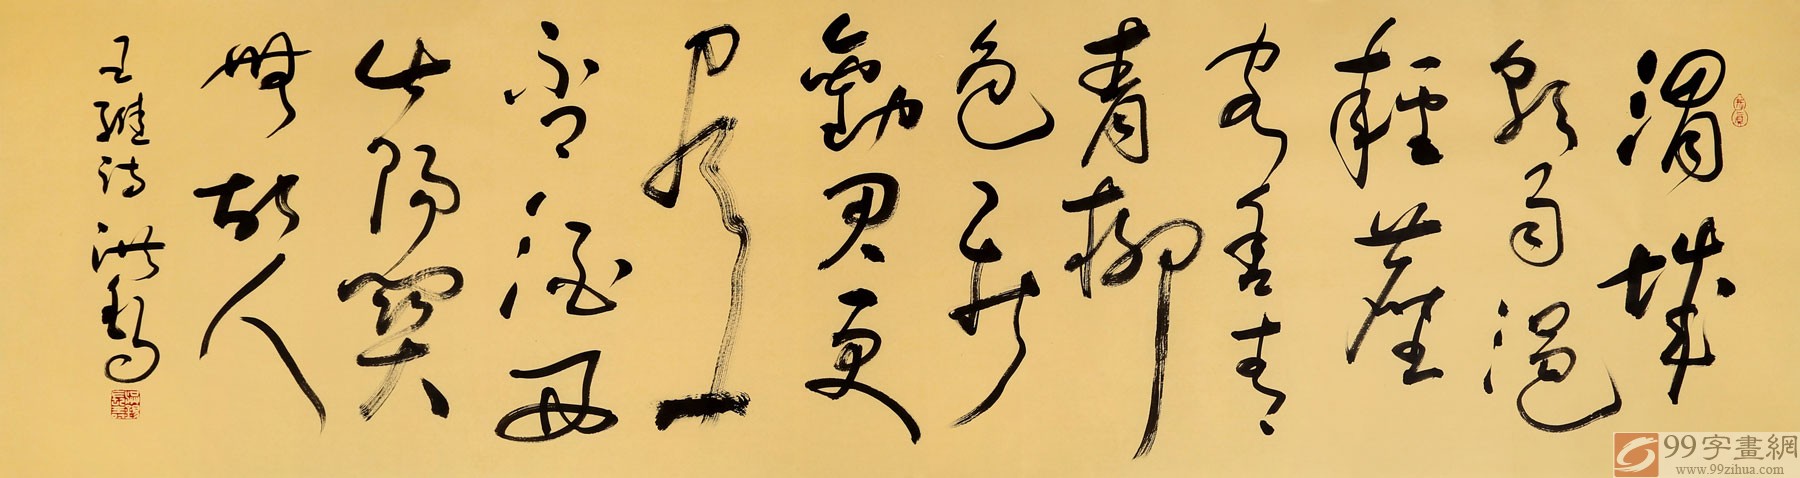 渭城
朝雨浥
輕塵
客舍青
青柳
色新
勸君更
盡一
杯酒西
出陽關
無故人
王維詩 洪
99字畫網
www.99zihua.com